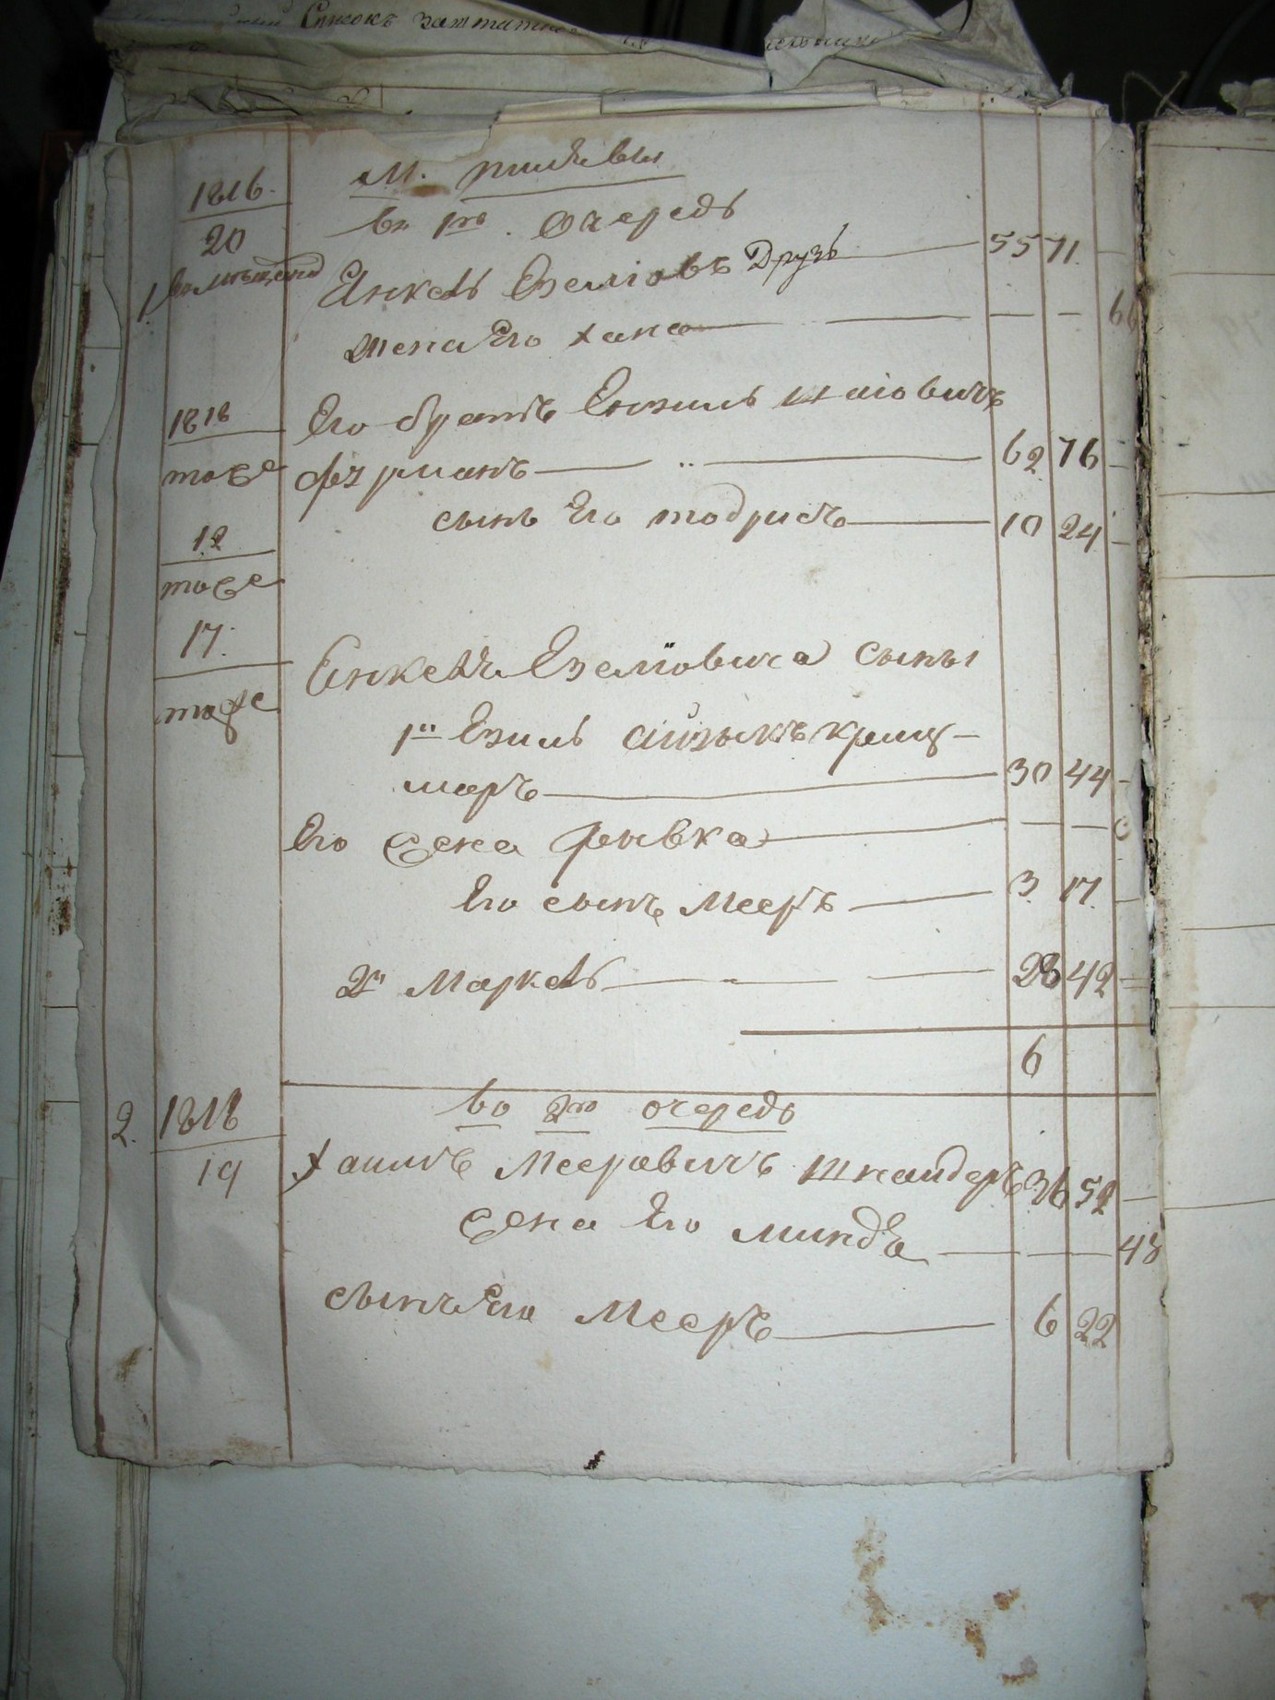 Списокъ
1816.
20
М.
въ 1ю очередь
1. Янкель Еселіовъ Друзь 55 71 —
жена Его Хана — — 66
1818
тоже
Его братъ
фурманъ 62 76 —
сынъ Его Тодрисъ 10 24 —
12
тоже
17.
тоже
Янкеля Еселіовича сыны
1й айзыкъ креч-
маръ 30 44 —
Его жена Рывка — —
Его сынъ Мееръ 3. 17. —
2й Маркель 28 42 —
6
2. 1818
19
во 2ю очередь
Хаимъ Мееровичъ Шнайдеръ 36 52 —
жена Его Минде — — 48
сынъ Его Мееръ 6 22